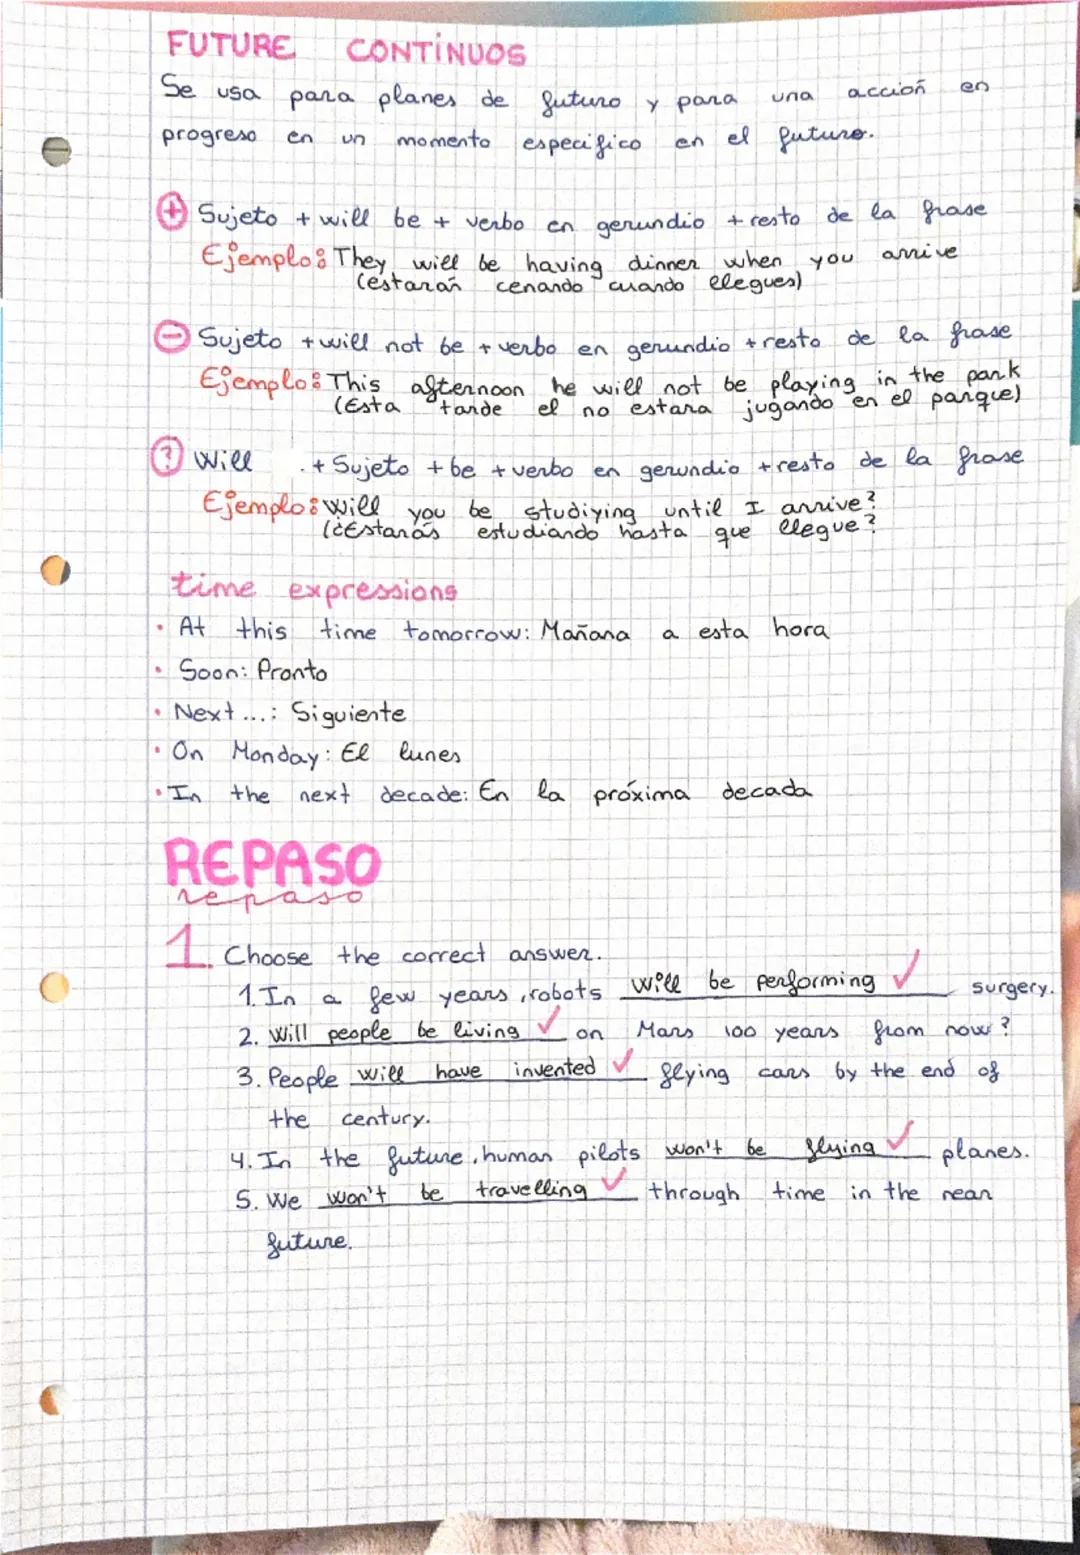 FUTURE CONTINUOS
Se usa para planes de futuro y para una acción en
progreso en un momento especifico en el futuro.
+ Sujeto + will be + verbo en gerundio + resto de la frase
Ejemplo: They will be having dinner when you arrive
(estarán cenando cuando llegues)
- Sujeto + will not be + verbo en gerundio + resto de la frase
Ejemplo: This afternoon he will not be playing in the park
(Esta tarde el no estara jugando en el parque)
? Will + Sujeto + be + verbo en gerundio + resto de la frase
Ejemplo: Will you be studiying until I arrive?
(¿Estarás estudiando hasta que llegue?
time expressions
• At this time tomorrow: Mañana a esta hora
• Soon: Pronto
• Next ...: Siguiente
• On Monday: El lunes
• In the next decade: En la próxima decada
REPASO
repaso
1. Choose the correct answer.
1. In a few years, robots will be performing ✓ surgery.
2. Will people be living ✓ on Mars 100 years from now?
3. People will have invented ✓ flying cars by the end of
the century.
4. In the future, human pilots won't be flying ✓ planes.
5. We won't be travelling ✓ through time in the near
future.